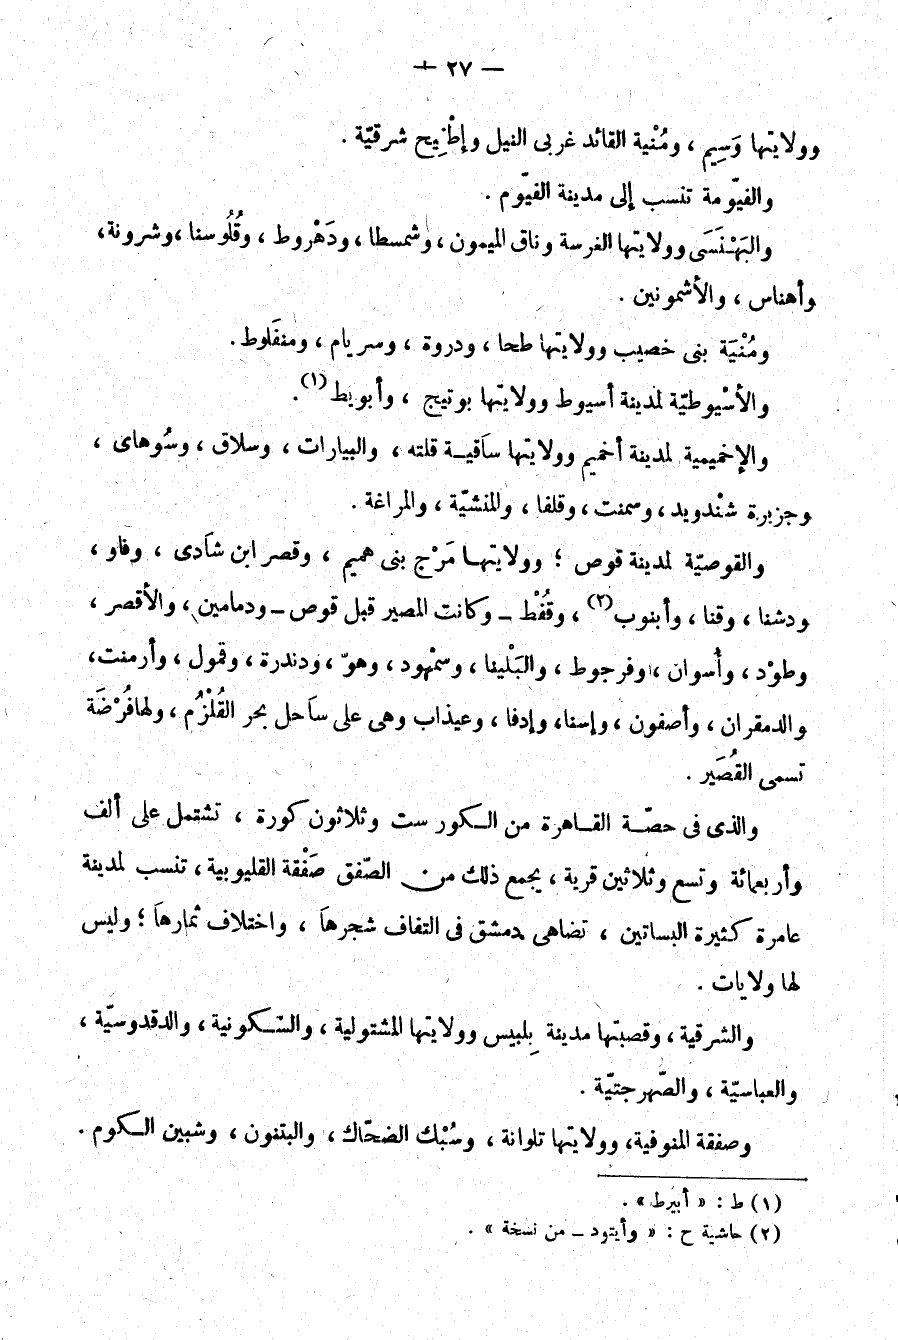 — ٢٧ —
وولايتها وَسِيم ، ومُنْية القائد غربى النيل وإطْفِيح شرقيّة .
والفيّومة تنسب إلى مدينة الفيّوم .
والبَهْنَسَى وولايتها الفرسة وناق الميمون ، وشمسطا ، ودَهْروط ، وقُلُوسنا ، وشرونة ،
وأهناس ، والأشمونين .
ومُنْيَة بنى خصيب وولايتها طحا ، ودروة ، وسريام ، ومنفَلوط .
والأسْيوطيّة لمدينة أسيوط وولايتها بوتيج ، وأبويط (١) .
والإخميمية لمدينة أخميم وولايتها ساقيـة قلته ، والبيارات ، وسلاق ، وسُوهاى ،
وجزيرة شنْدويد ، وسمنت ، وقلفا ، والمنشيّة ، والمراغة .
والقوصيّة لمدينة قوص ؛ وولايتهـا مَرْج بنى هميم ، وقصر ابن شادى ، وفاو ،
ودشنا ، وقنا ، وأبنوب (٢) ، وقُفْط ــ وكانت المصير قبل قوص ــ ودمامين ، والأقصر ،
وطوْد ، وأُسوان ، وفرجوط ، والبَلْينا ، وسمْهود ، وهوّ ، ودندرة ، وقمول ، وأرمنت ،
والدمقران ، وأصفون ، وإسنا ، وإدفا ، وعيذاب وهى على ساحل بحر القُلْزُم ، ولها فُرْضَة
تسمى القُصَير .
والذى فى حصّـة القـاهرة من الـكور ست وثلاثون كورة ، تشتمل على ألف
وأربعمائة وتسع وثلاثين قرية ، يجمع ذلك من الصّفق صَفْقة القليوبية ، تنسب لمدينة
عامرة كثيرة البساتين ، تضاهى بدمشق فى التفاف شجرها ، واختلاف ثمارها ؛ وليس
لها ولايات .
والشرقية ، وقصبتها مدينة بِلبيس وولايتها المشتولية ، والسّـكونية ، والدقدوسيّة ،
والعباسيّة ، والصّهرجتيّة .
وصفقة المنوفية ، وولايتها تلوانة ، وسُبْك الضحّاك ، والبتنون ، وشبين الـكوم .
(١) ط : « أبيرط » .
(٢) حاشية ح : « وأيتود ــ من نسخة » .